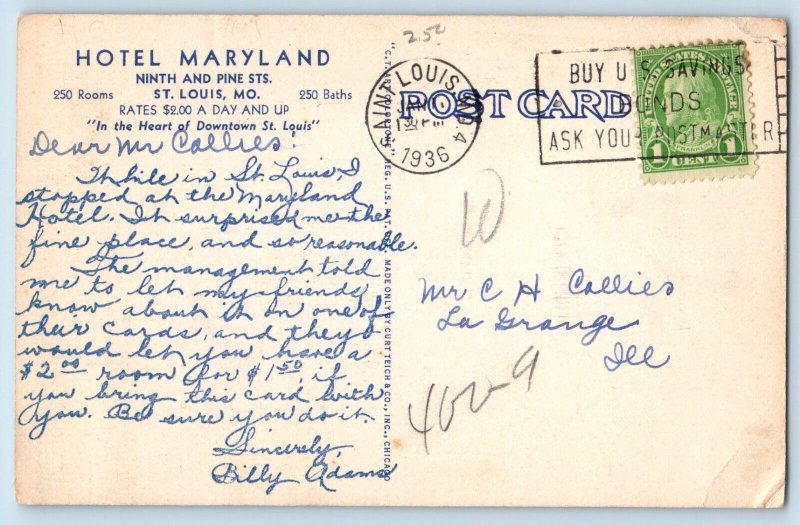 HOTEL MARYLAND
NINTH AND PINE STS.
250 Rooms ST. LOUIS, MO. 250 Baths
RATES $2.00 A DAY AND UP
"In the Heart of Downtown St. Louis"
Dear Mr Collies:
While in St. Louis, I
stopped at the Maryland
Hotel. It surprised me the
fine place, and so reasonable.
The management told
me to let my friends
know about it on one of
their cards, and they
would let you have a
$2.00 room for $1.50, if
you bring this card with
you. Be sure you do it.
Sincerely,
Billy Adams
REG. U.S. PAT. OFF. MADE ONLY BY CURT TEICH & CO., INC., CHICAGO
250
SAINT LOUIS, MO. 4
1 30 PM
1936
POST CARD
BUY U.S. SAVINGS
BONDS
ASK YOUR POSTMASTER
1 CENT 1
10
Mr C H Collies
La Grange
Ill